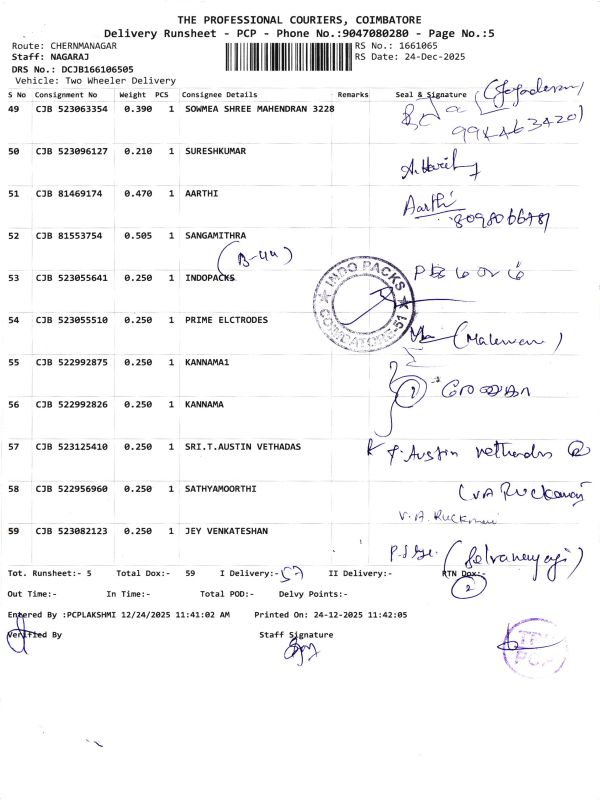 THE PROFESSIONAL COURIERS, COIMBATORE
Delivery Runsheet - PCP - Phone No.:9047080280 - Page No.:5
Route: CHERNMANAGAR RS No.: 1661065
Staff: NAGARAJ RS Date: 24-Dec-2025
DRS No.: DCJB166106505
Vehicle: Two Wheeler Delivery
S No Consignment No Weight PCS Consignee Details Remarks Seal & Signature
49 CJB 523063354 0.390 1 SOWMEA SHREE MAHENDRAN 3228
50 CJB 523096127 0.210 1 SURESHKUMAR
51 CJB 81469174 0.470 1 AARTHI Aarthi
8098066781
52 CJB 81553754 0.505 1 SANGAMITHRA
(B-44)
53 CJB 523055641 0.250 1 INDOPACKS
INDO PACKS
COIMBATORE-51
54 CJB 523055510 0.250 1 PRIME ELCTRODES
55 CJB 522992875 0.250 1 KANNAMA1
56 CJB 522992826 0.250 1 KANNAMA
57 CJB 523125410 0.250 1 SRI.T.AUSTIN VETHADAS T. Austin
58 CJB 522956960 0.250 1 SATHYAMOORTHI
V.A. Ruckmani
59 CJB 523082123 0.250 1 JEY VENKATESHAN
Tot. Runsheet:- 5 Total Dox:- 59 I Delivery:- 57 II Delivery:- RTN Dox:-
2
Out Time:- In Time:- Total POD:- Delvy Points:-
Entered By :PCPLAKSHMI 12/24/2025 11:41:02 AM Printed On: 24-12-2025 11:42:05
Verified By Staff Signature
PCP